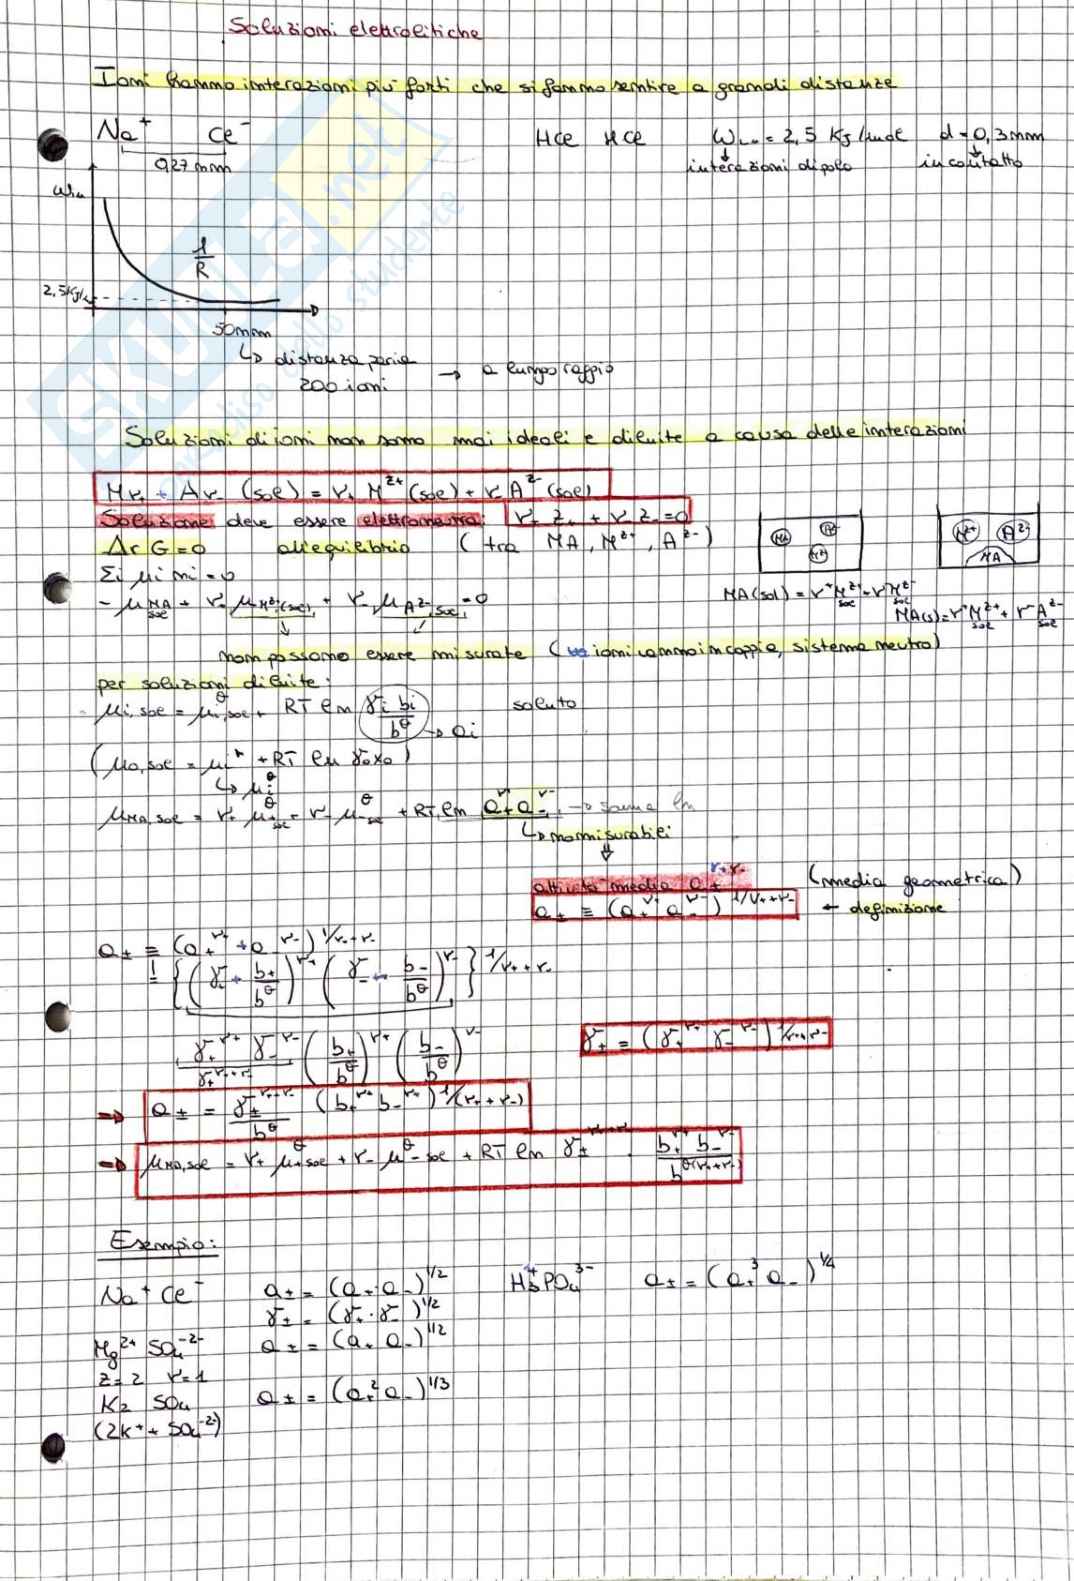 Soluzioni elettrolitiche
Ioni hanno interazioni più forti che si fanno sentire a grandi distanze
Na⁺ Cl⁻ HCl HCl = 2,5 KJ/mol d = 0,3 nm
0,27 nm interazioni dipolo in contatto
1/R
2,5 KJ/
50 nm
↳ distanza pari a → a lungo raggio
200 ioni
Soluzioni di ioni non sono mai ideali e diluite a causa delle interazioni
Mν₊ Aν₋ (sol) = ν₊ M^z+ (sol) + ν₋ A^z- (sol)
Soluzione deve essere elettroneutra: ν₊ z₊ + ν₋ z₋ = 0
ΔrG = 0 all'equilibrio (tra MA, M^z+, A^z-)
MA M^z+ A^z-
M^z+ A^z- MA
Σi μi ni = 0
MA(sol) = ν⁺M^z+ sol + ν⁻ sol
MA(s) = ν⁺M^z+ sol + ν⁻A^z- sol
- μMA sol + ν₊ μM^z+(sol) + ν₋ μA^z- sol = 0
non possono essere misurate (ioni vanno in coppia, sistema neutro)
per soluzioni diluite:
μi,sol = μi^θ,sol + RT ln γi bi/b^θ → ai soluto
(μ0,sol = μi* + RT ln γ0x0)
↳ μi^θ
μMA,sol = ν₊ μ₊^θ sol + ν₋ μ₋^θ sol + RT ln a₊^ν+ a₋^ν- →
↳ non misurabili
attività media a±^ν+ν- (media geometrica)
a± ≡ (a₊^ν+ a₋^ν-)^1/ν₊+ν₋ ← definizione
a± ≡ (a₊^ν+ + a₋^ν-)^1/ν₊+ν₋
= {(γ₊ b₊/b^θ)^ν+ (γ₋ b₋/b^θ)^ν-}^1/ν₊+ν₋
γ₊^ν+ γ₋^ν- (b₊/b^θ)^ν+ (b₋/b^θ)^ν- γ± = (γ₊^ν+ γ₋^ν-)^1/ν₊+ν₋
γ±^ν++ν-
⇒ a± = γ±^ν++ν-/b^θ (b₊^ν+ b₋^ν-)^1/(ν₊+ν₋)
⇒ μMA,sol = ν₊ μ₊^θ sol + ν₋ μ₋^θ sol + RT ln γ±^ν++ν- · b₊^ν+ b₋^ν-/b^θ(ν₊+ν₋)
Esempio:
Na⁺ Cl⁻ a± = (a₊·a₋)^1/2 H₃⁺PO₄³⁻ a± = (a₊³ a₋)^1/4
γ± = (γ₊·γ₋)^1/2
Mg²⁺ SO₄⁻²⁻ a± = (a₊ a₋)^1/2
z=2 ν=1
K₂ SO₄ a± = (a₊² a₋)^1/3
(2K⁺ + SO₄⁻²)
SKUOLA.net
paradiso dello studente